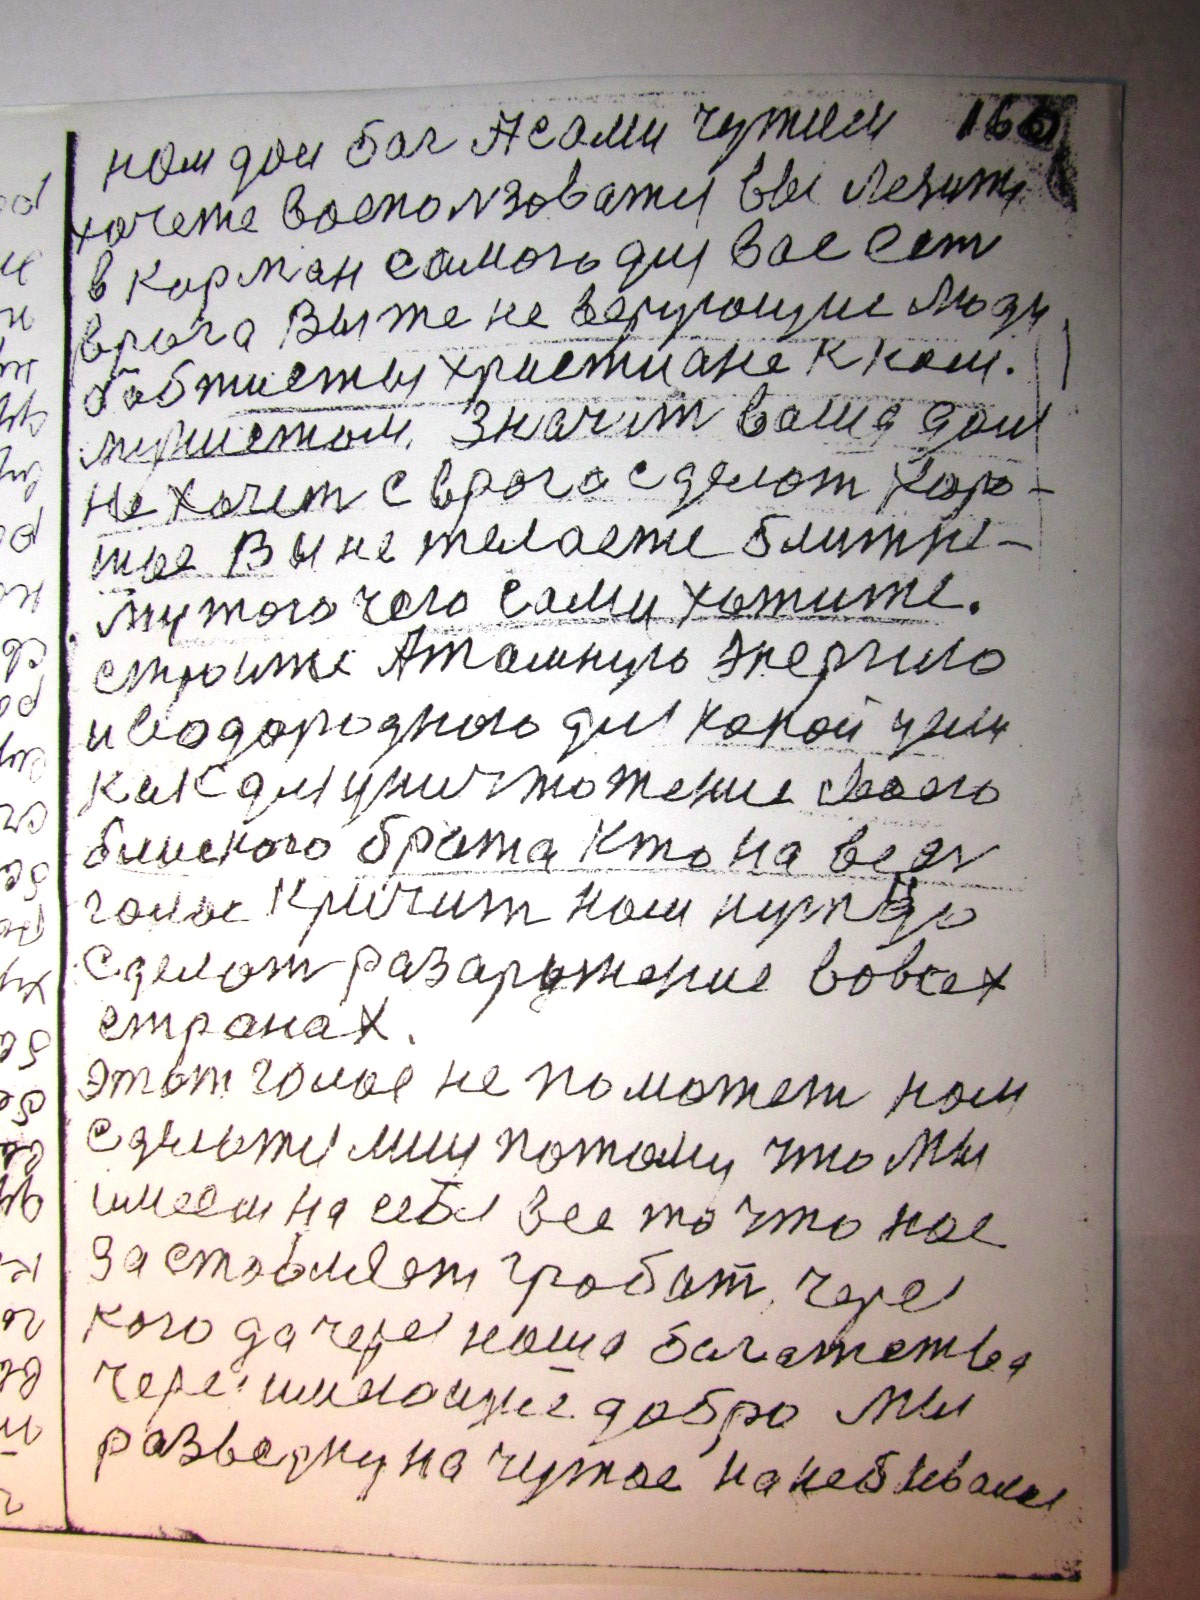 нам дай бог А сами чужим 160
хочете воспользоватся вы лезите
в карман самого для вас есть
врага Вы же не верующие люди
баптисты християне к ком.
мунистом. Значит ваша дом
не хочет с врага сделат хоро-
шое Вы не желаете ближне-
му того чего сами хотите.
строите Атамную Энергию
и водородного для какой цели
как для уничтожение своего
близкого брата Кто на весь
голос кричит нам нужно
сделат разаружение вовсех
странах.
этот голос не поможет нам
сделат мир потому что мы
имеем на себя все то что нас
заставляет грабит, через
кого да через наша богатства
через имеющее добро мы
на чужое